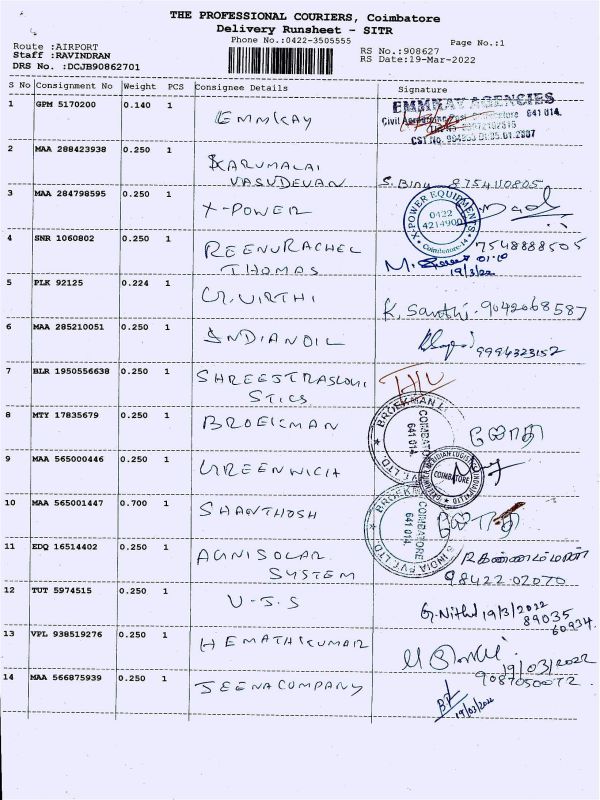 THE PROFESSIONAL COURIERS, Coimbatore
Delivery Runsheet - SITR
Phone No.:0422-3505555
Page No.:1
Route :AIRPORT
Staff :RAVINDRAN
DRS No. :DCJB90862701
RS No.:908627
RS Date:19-Mar-2022
S No Consignment No Weight PCS Consignee Details Signature
1 GPM 5170200 0.140 1 EMMKAY EMMKAY AGENCIES
641 014.
2 MAA 288423938 0.250 1 KARUMALAI
VASUDEVAN S. Binu 8754110805
3 MAA 284798595 0.250 1 X-POWER X-POWER EQUIPMENTS
0422
4214900
Coimbatore-14
4 SNR 1060802 0.250 1 REENURACHEL 7548888505
THOMAS
19/3/22
5 PLK 92125 0.224 1 K. Santhi. 9042068587
6 MAA 285210051 0.250 1 INDIANOIL
9994323152
7 BLR 1950556638 0.250 1 SHREESTRASLOGI
STICS
8 MTY 17835679 0.250 1 BROEKMAN
COIMBATORE
641 014.
9 MAA 565000446 0.250 1 GREENWICH
COIMBATORE
10 MAA 565001447 0.700 1 SHANTHOSH
COIMBATORE
641 014.
INDIA PVT. LTD.
11 EDQ 16514402 0.250 1 AGNISOLAR
SYSTEM 98422 02070
12 TUT 5974515 0.250 1 V-JS G. Nithd 19/3/2022
89035
60934.
13 VPL 938519276 0.250 1 HEMATHKUMAR
19/03/2022
9087050072.
14 MAA 566875939 0.250 1 JEENACOMPANY
19/03/2022